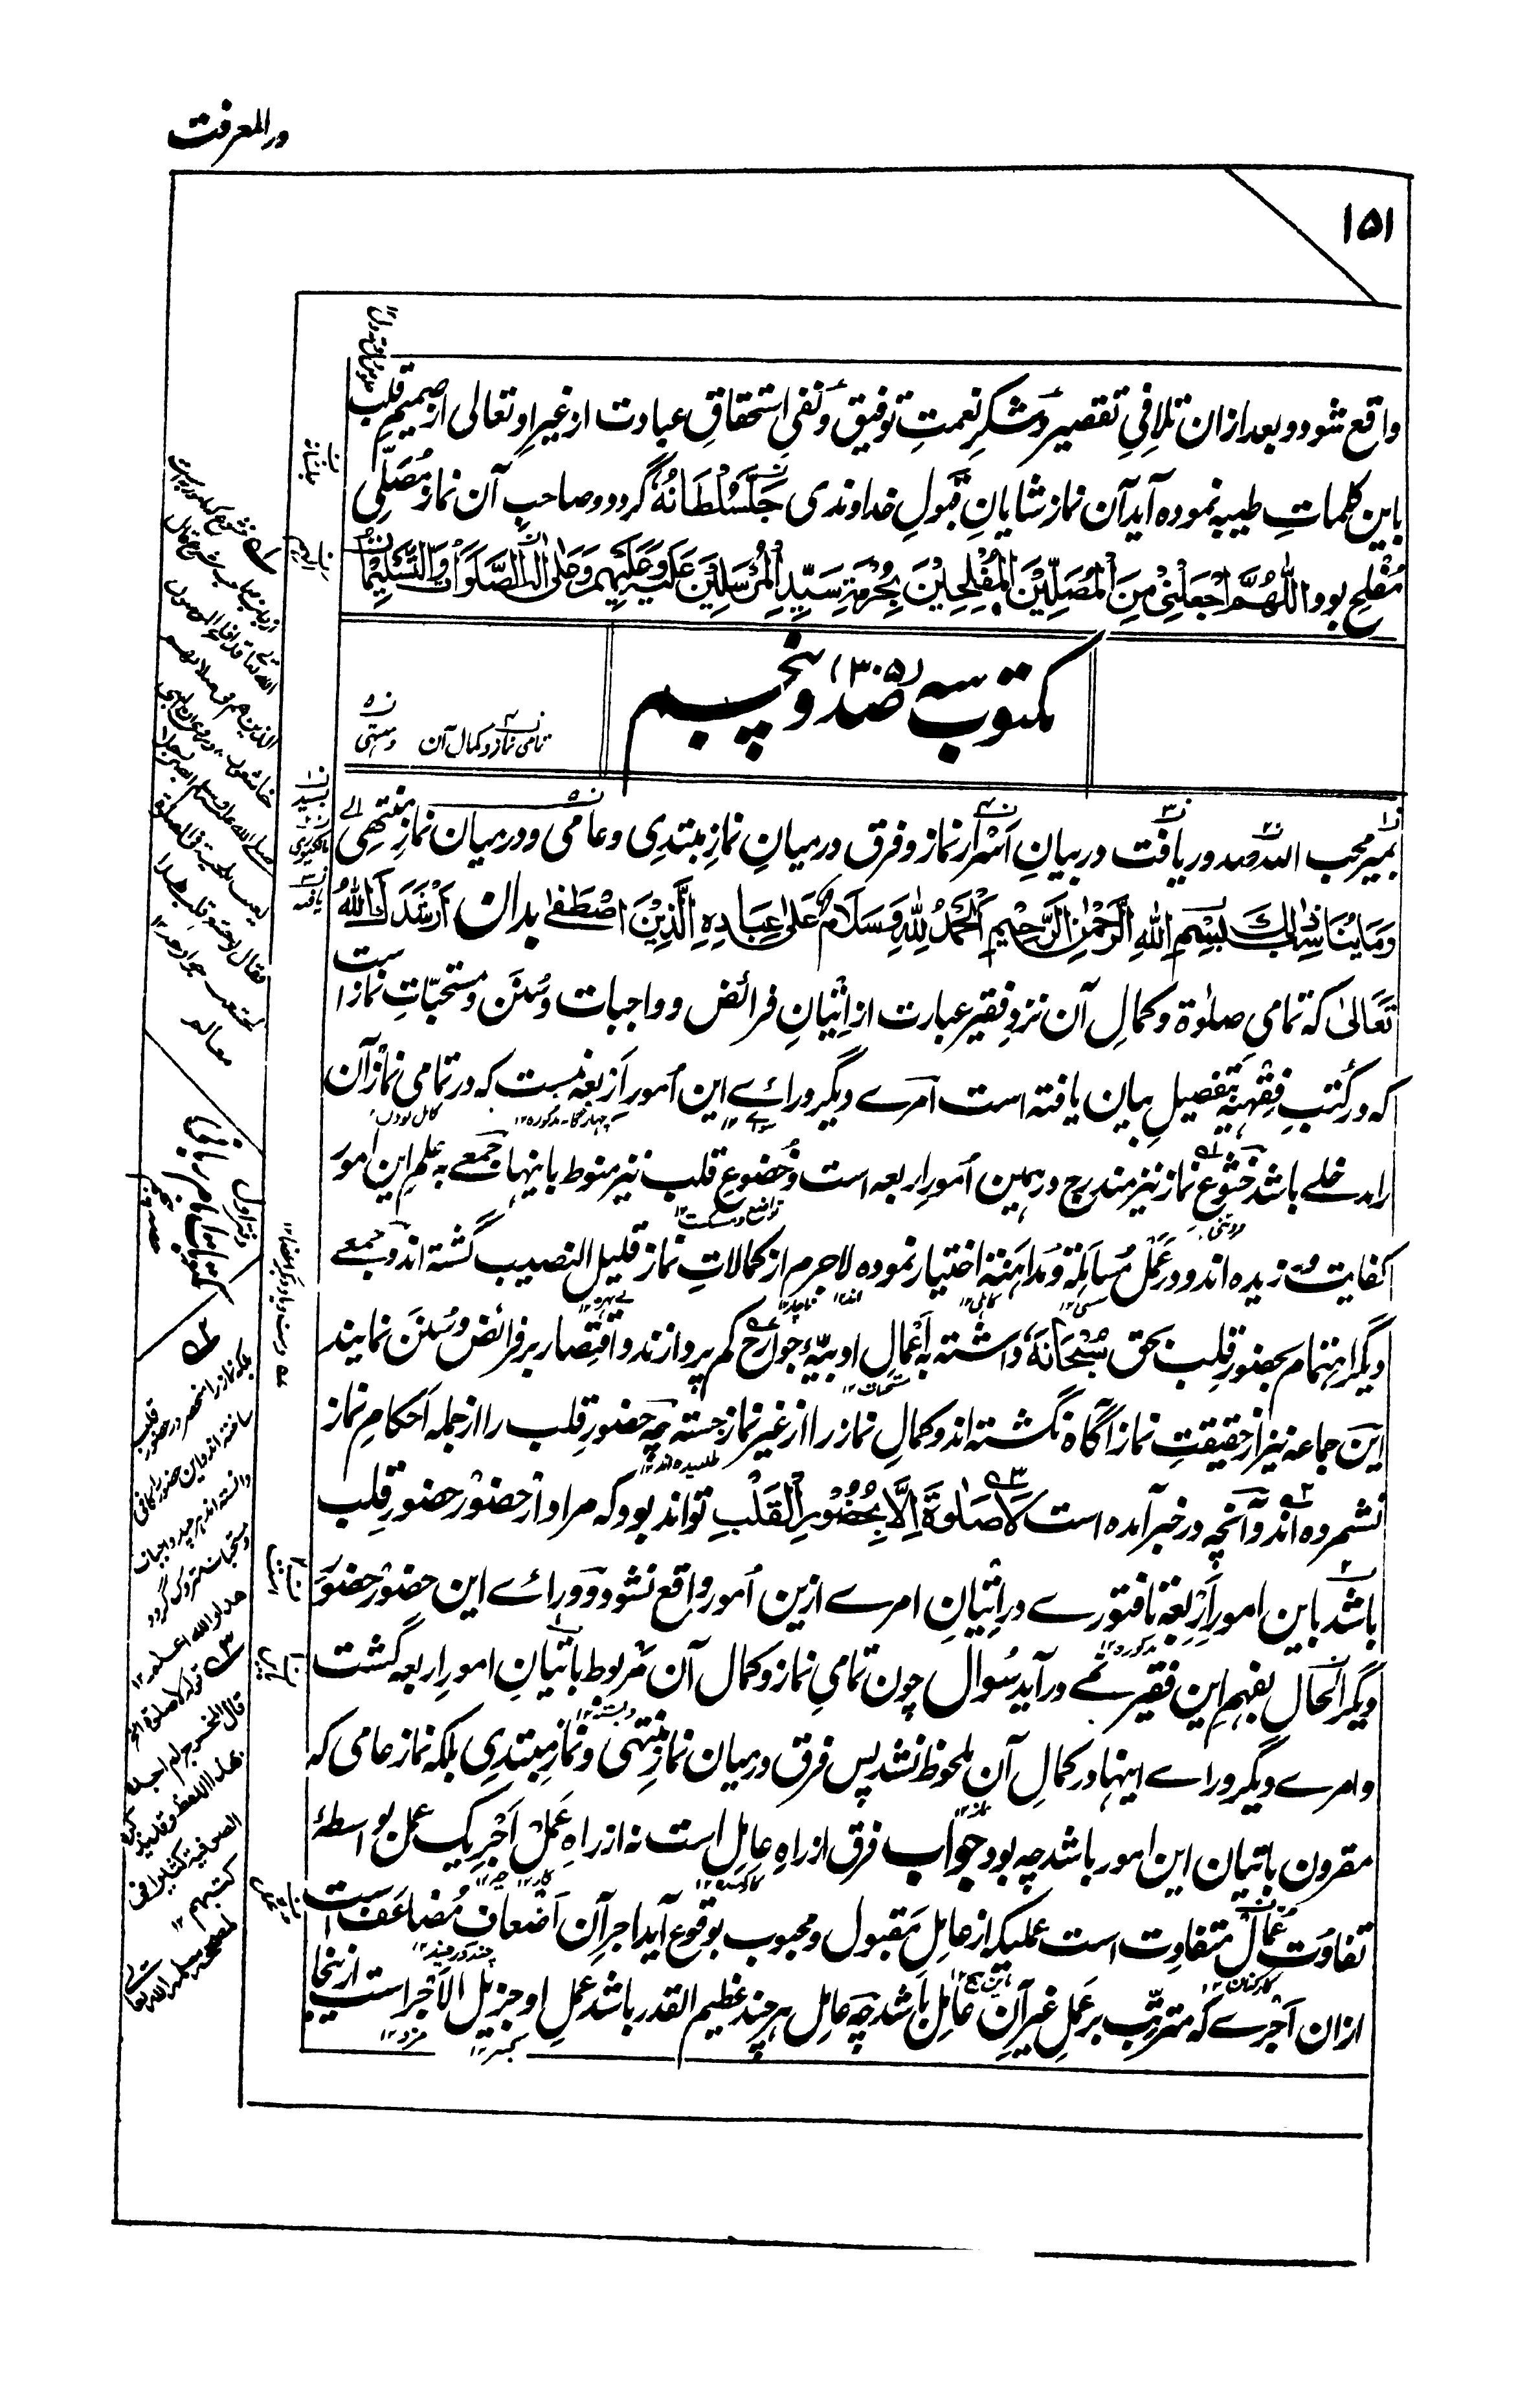 در المعرفت
۱۵۱
واقع شود و بعد ازان تلافیِ تقصیر و شکرِ نعمتِ توفیق و نفیِ استحقاقِ عبادت از غیرِ او تعالی از صمیمِ قلب
باین کلماتِ طیبه نموده آید آن نماز شایانِ قبولِ خداوندی جَلَّ سُلْطَانُهٗ گردد و صاحبِ آن نماز مُصَلّیِ
مُفْلِح بود اَللّٰهُمَّ اجْعَلْنِیْ مِنَ الْمُصَلِّیْنَ الْمُفْلِحِیْنَ بِحُرْمَةِ سَیِّدِ الْمُرْسَلِیْنَ عَلَیْهِ وَعَلَیْهِمْ وَعَلٰی اٰلِهِ الصَّلَوَاتُ وَالتَّسْلِیْمَاتُ
مکتوب سه صد و پنجم (۳۰۵)
تمامی نماز و کمال آن
بمیر محب الله صدور یافت در بیانِ اَسْرارِ نماز و فرق درمیانِ نمازِ مبتدی و عامی و درمیان نمازِ منتهی
وَمَا یُنَاسِبُ ذٰلِكَ بِسْمِ اللهِ الرَّحْمٰنِ الرَّحِیْمِ اَلْحَمْدُ لِلّٰهِ وَسَلَامٌ عَلٰی عِبَادِهِ الَّذِیْنَ اصْطَفٰی بدان اَرْشَدَكَ اللهُ
تَعَالٰی که تمامی صلوٰة و کمالِ آن نزدِ فقیر عبارت از اِتْیانِ فرائض و واجبات و سُنَن و مستحبّاتِ نماز است
که در کُتبِ فِقْهِیَّه بتفصیل بیان یافته است اَمرے دیگر ورائے این اُمورِ اَرْبعه نیست که در تمامی نماز آن
را مدخلے باشد خُشوعِ نماز نیز مندرج در همین اُمورِ اربعه است و خُضوعِ قلب نیز منوط باینها جمعے به علمِ این امور
کفایت ورزیده اند و در عَمَل مُسَاهَلَة و مُدَاهَنَة اختیار نموده لاجرم از کمالاتِ نماز قلیل النصیب گشته اند و جمعے
دیگر اهتمام بحضورِ قلب بحق سُبْحَانَهٗ داشته به اَعْمالِ ادبیّهٔ جوارح کم پردازند و اقتصار بر فرائض و سُنَن نمایند
این جماعه نیز از حقیقتِ نماز آگاه نگشته اند و کمالِ نماز را از غیرِ نماز جسته چه حضورِ قلب را از جمله اَحکامِ نماز
نشمرده اند و آنچه در خبر آمده است لَا صَلوٰةَ اِلَّا بِحُضُوْرِ الْقَلْبِ تواند بود که مراد از حضور حضورِ قلب
باشد باین امورِ اَرْبَعَه تا فتورے در اِتیانِ امرے ازین اُمور واقع نشود و ورائے این حضور حضورِ
دیگر الحال بفهمِ این فقیر نمے در آید سُوال چون تمامیِ نماز و کمال آن مربوط باتیانِ امورِ اربعه گشت
و امرے دیگر وراے اینها در کمالِ آن ملحوظ نشد پس فرق درمیان نمازِ منتهی و نمازِ مبتدی بلکه نماز عامی که
مقرون باتیان این امور باشد چه بود جواب فرق از راهِ عامِل است نه از راهِ عَمَلْ اَجْرِ یک عمل بواسطهٔ
تفاوُت عُمّال متفاوِت است عملیکه از عاملِ مقبول و محبوب بوقوع آید اجرِ آن اَضْعافِ مُضاعَف است
ازان اَجْرے که مترتّب بر عملِ غیر آن عامِل باشد چه عامِل هر چند عظیم القدر باشد عملِ او جزیل الاَجْر است ازینجا
دفتر اول
مکتوبات امام ربانی
بلکه نماز را منحصر در حضور قلب
ساخته اند و این حضور را کافی
دانسته اند هر چند واجبات
و مستحبات متروک گردد
هذا والله اعلم ۱۲
قوله لا صلوة الخ
قال المخرج لم اجد